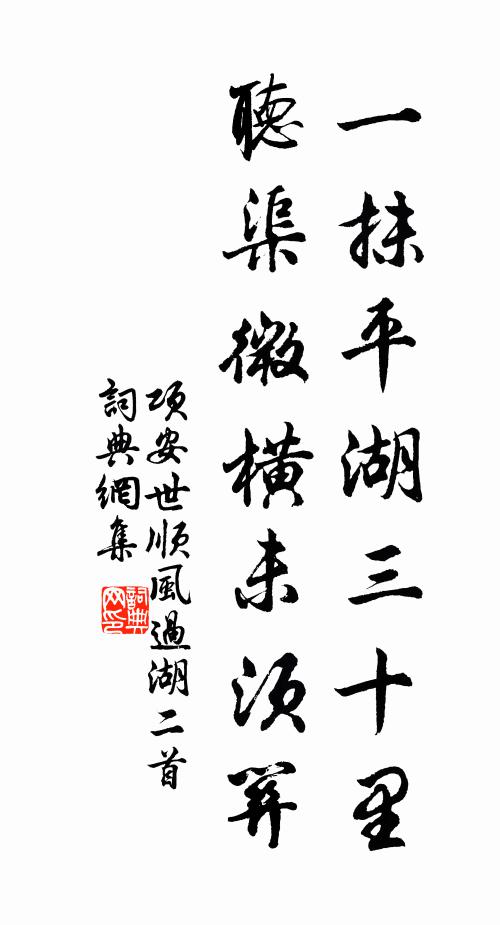 一抹平湖三十里
聽渠微橫未須筭
項安世順風過湖二首
詞典網集
詞典
网印